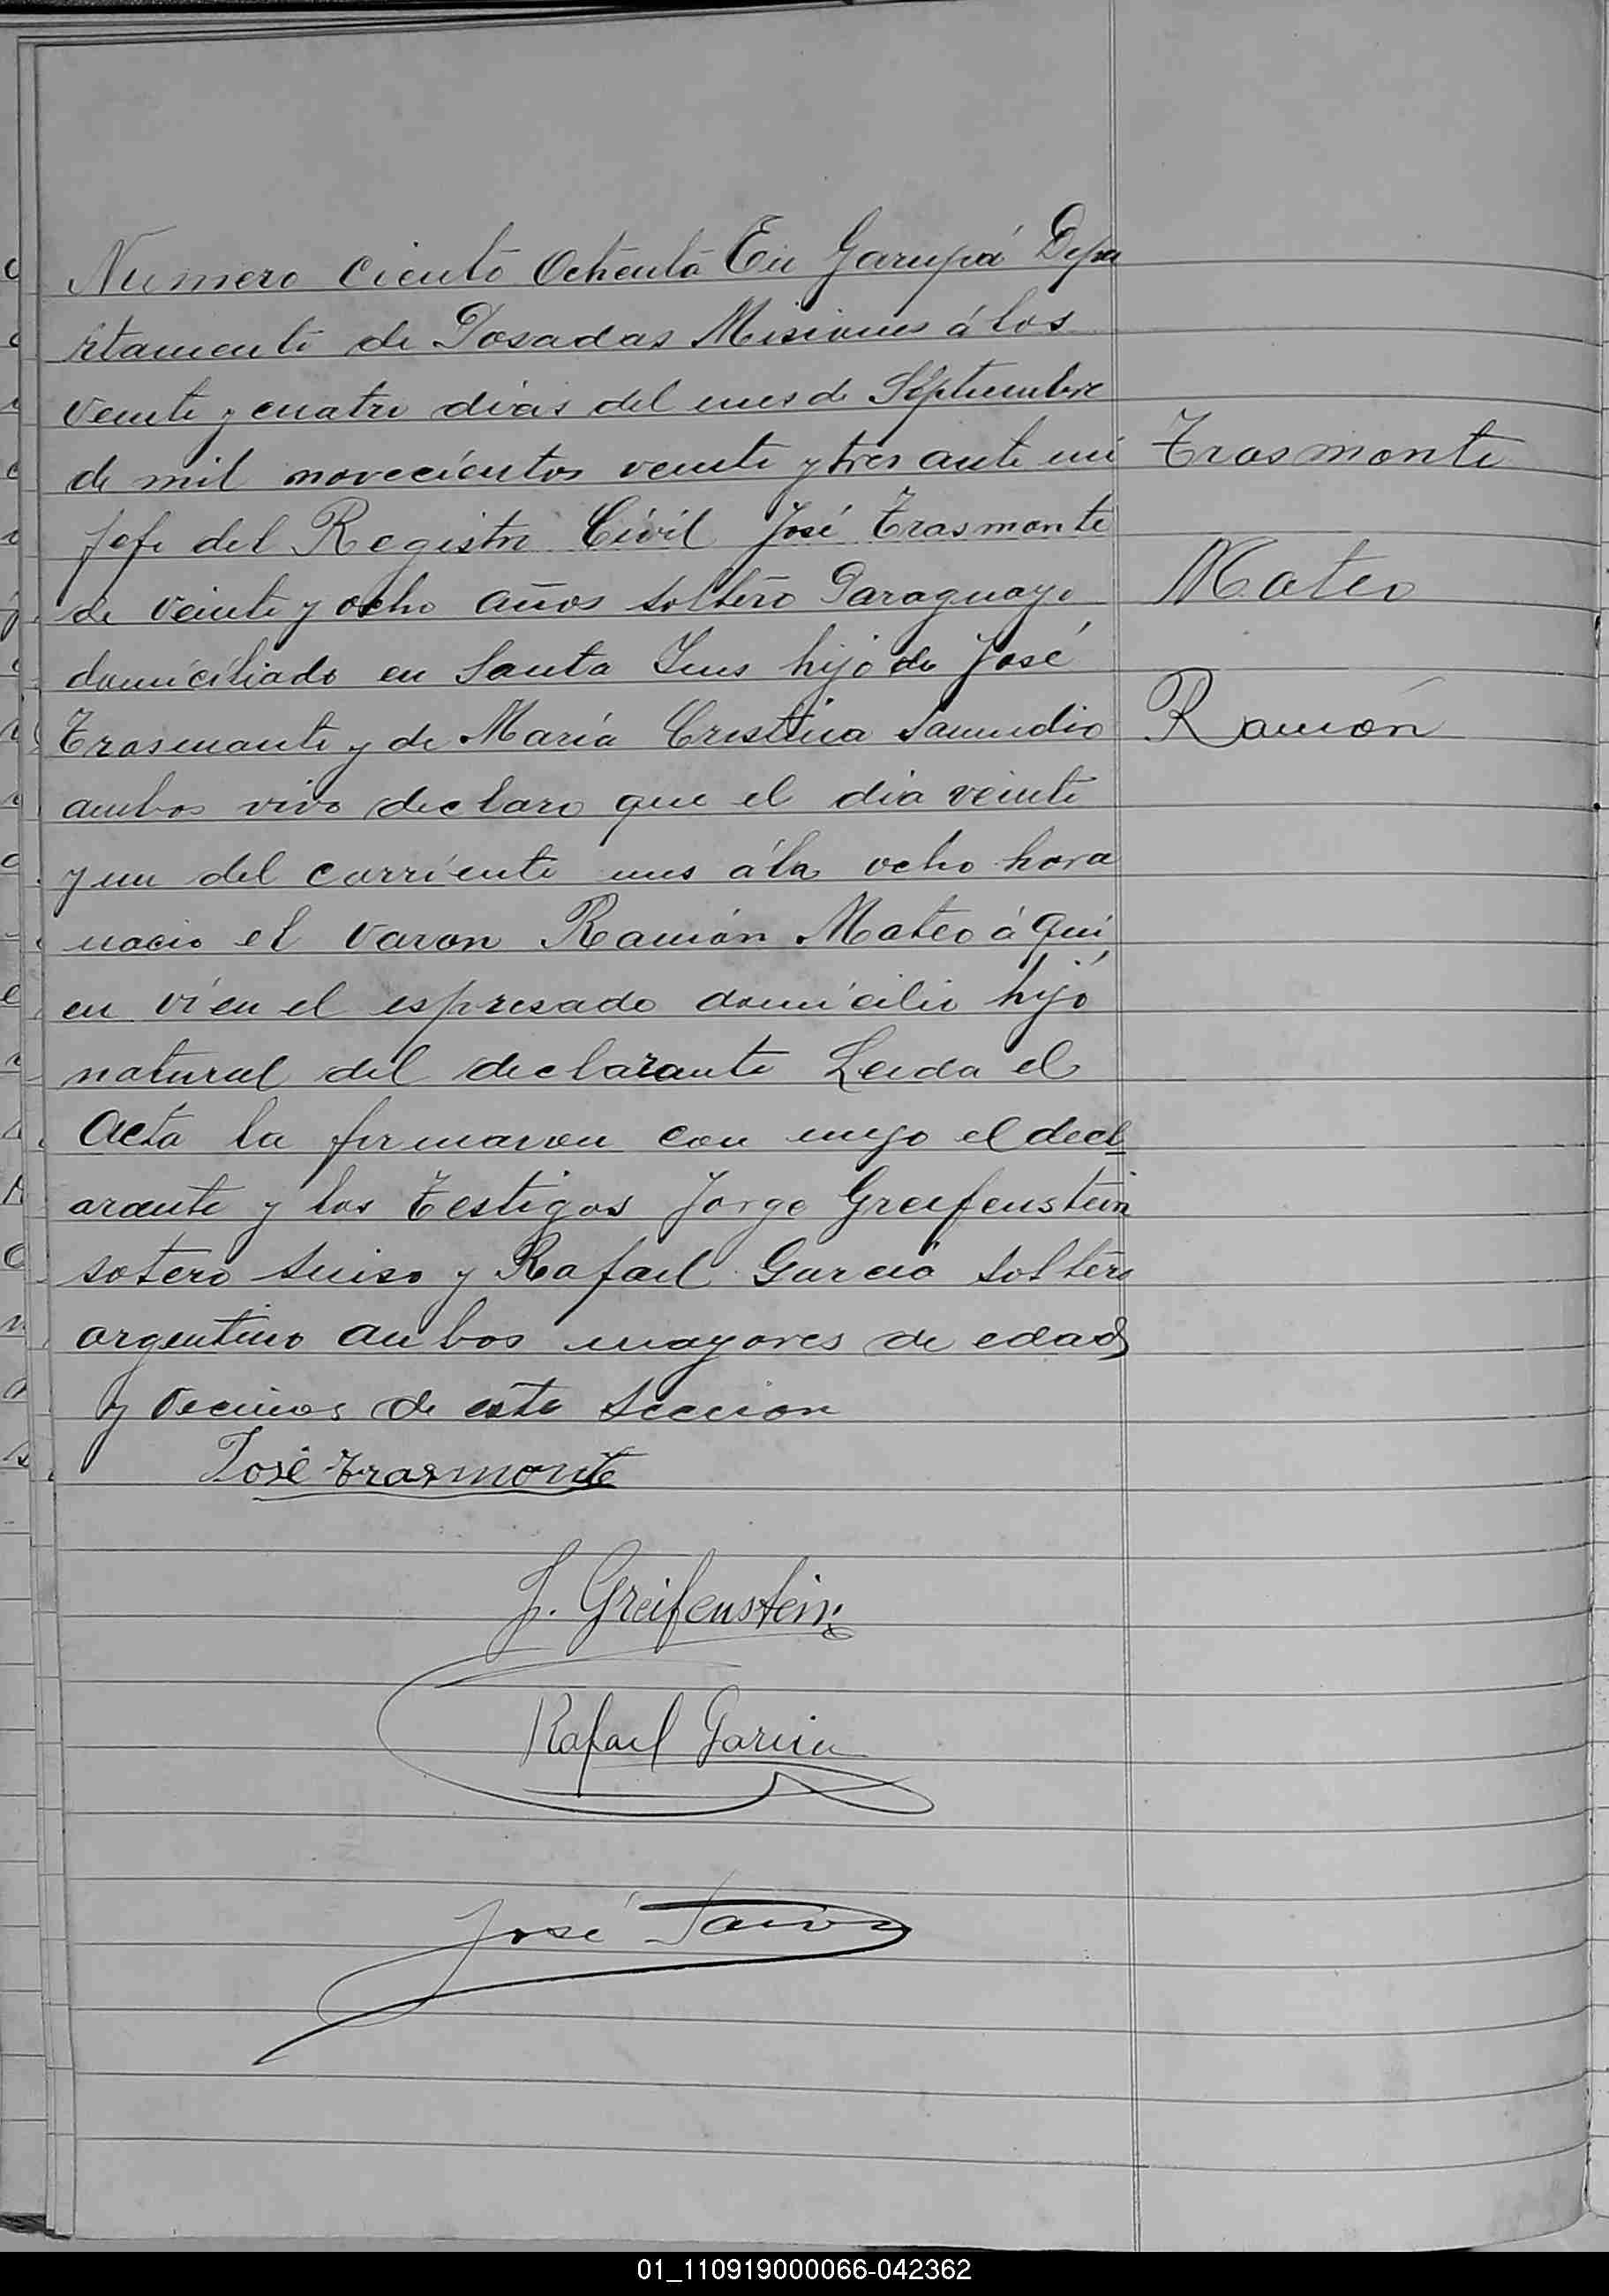 Numero ciento Ochenta En Garupá Depa
rtamento de Posadas Misiones á los
veinte y cuatro dias del mes de Septiembre
de mil novecientos veinte y tres ante mi
Jefe del Registro Civil José Trasmonte
de veinte y ocho años soltero Paraguayo
domiciliado en Santa Ines hijo de José
Trasmonte y de María Cristina Samudio
ambos vivo declaro que el dia veinte
y un del corriente mes á la ocho hora
nacio el varon Ramón Mateo á qui
en ví en el espresado domicilio hijo
natural del declarante Leida el
Acta la firmaron con migo el decl
arante y los Testigos Jorge Greifenstein
sotero suiso y Rafael Garcia soltero
argentino ambos mayores de edad
y vecinos de esta seccion
Trasmonte
Mateo
Ramón
José Trasmonte
J. Greifenstein
Rafael Garcia
José
01_110919000066-042362